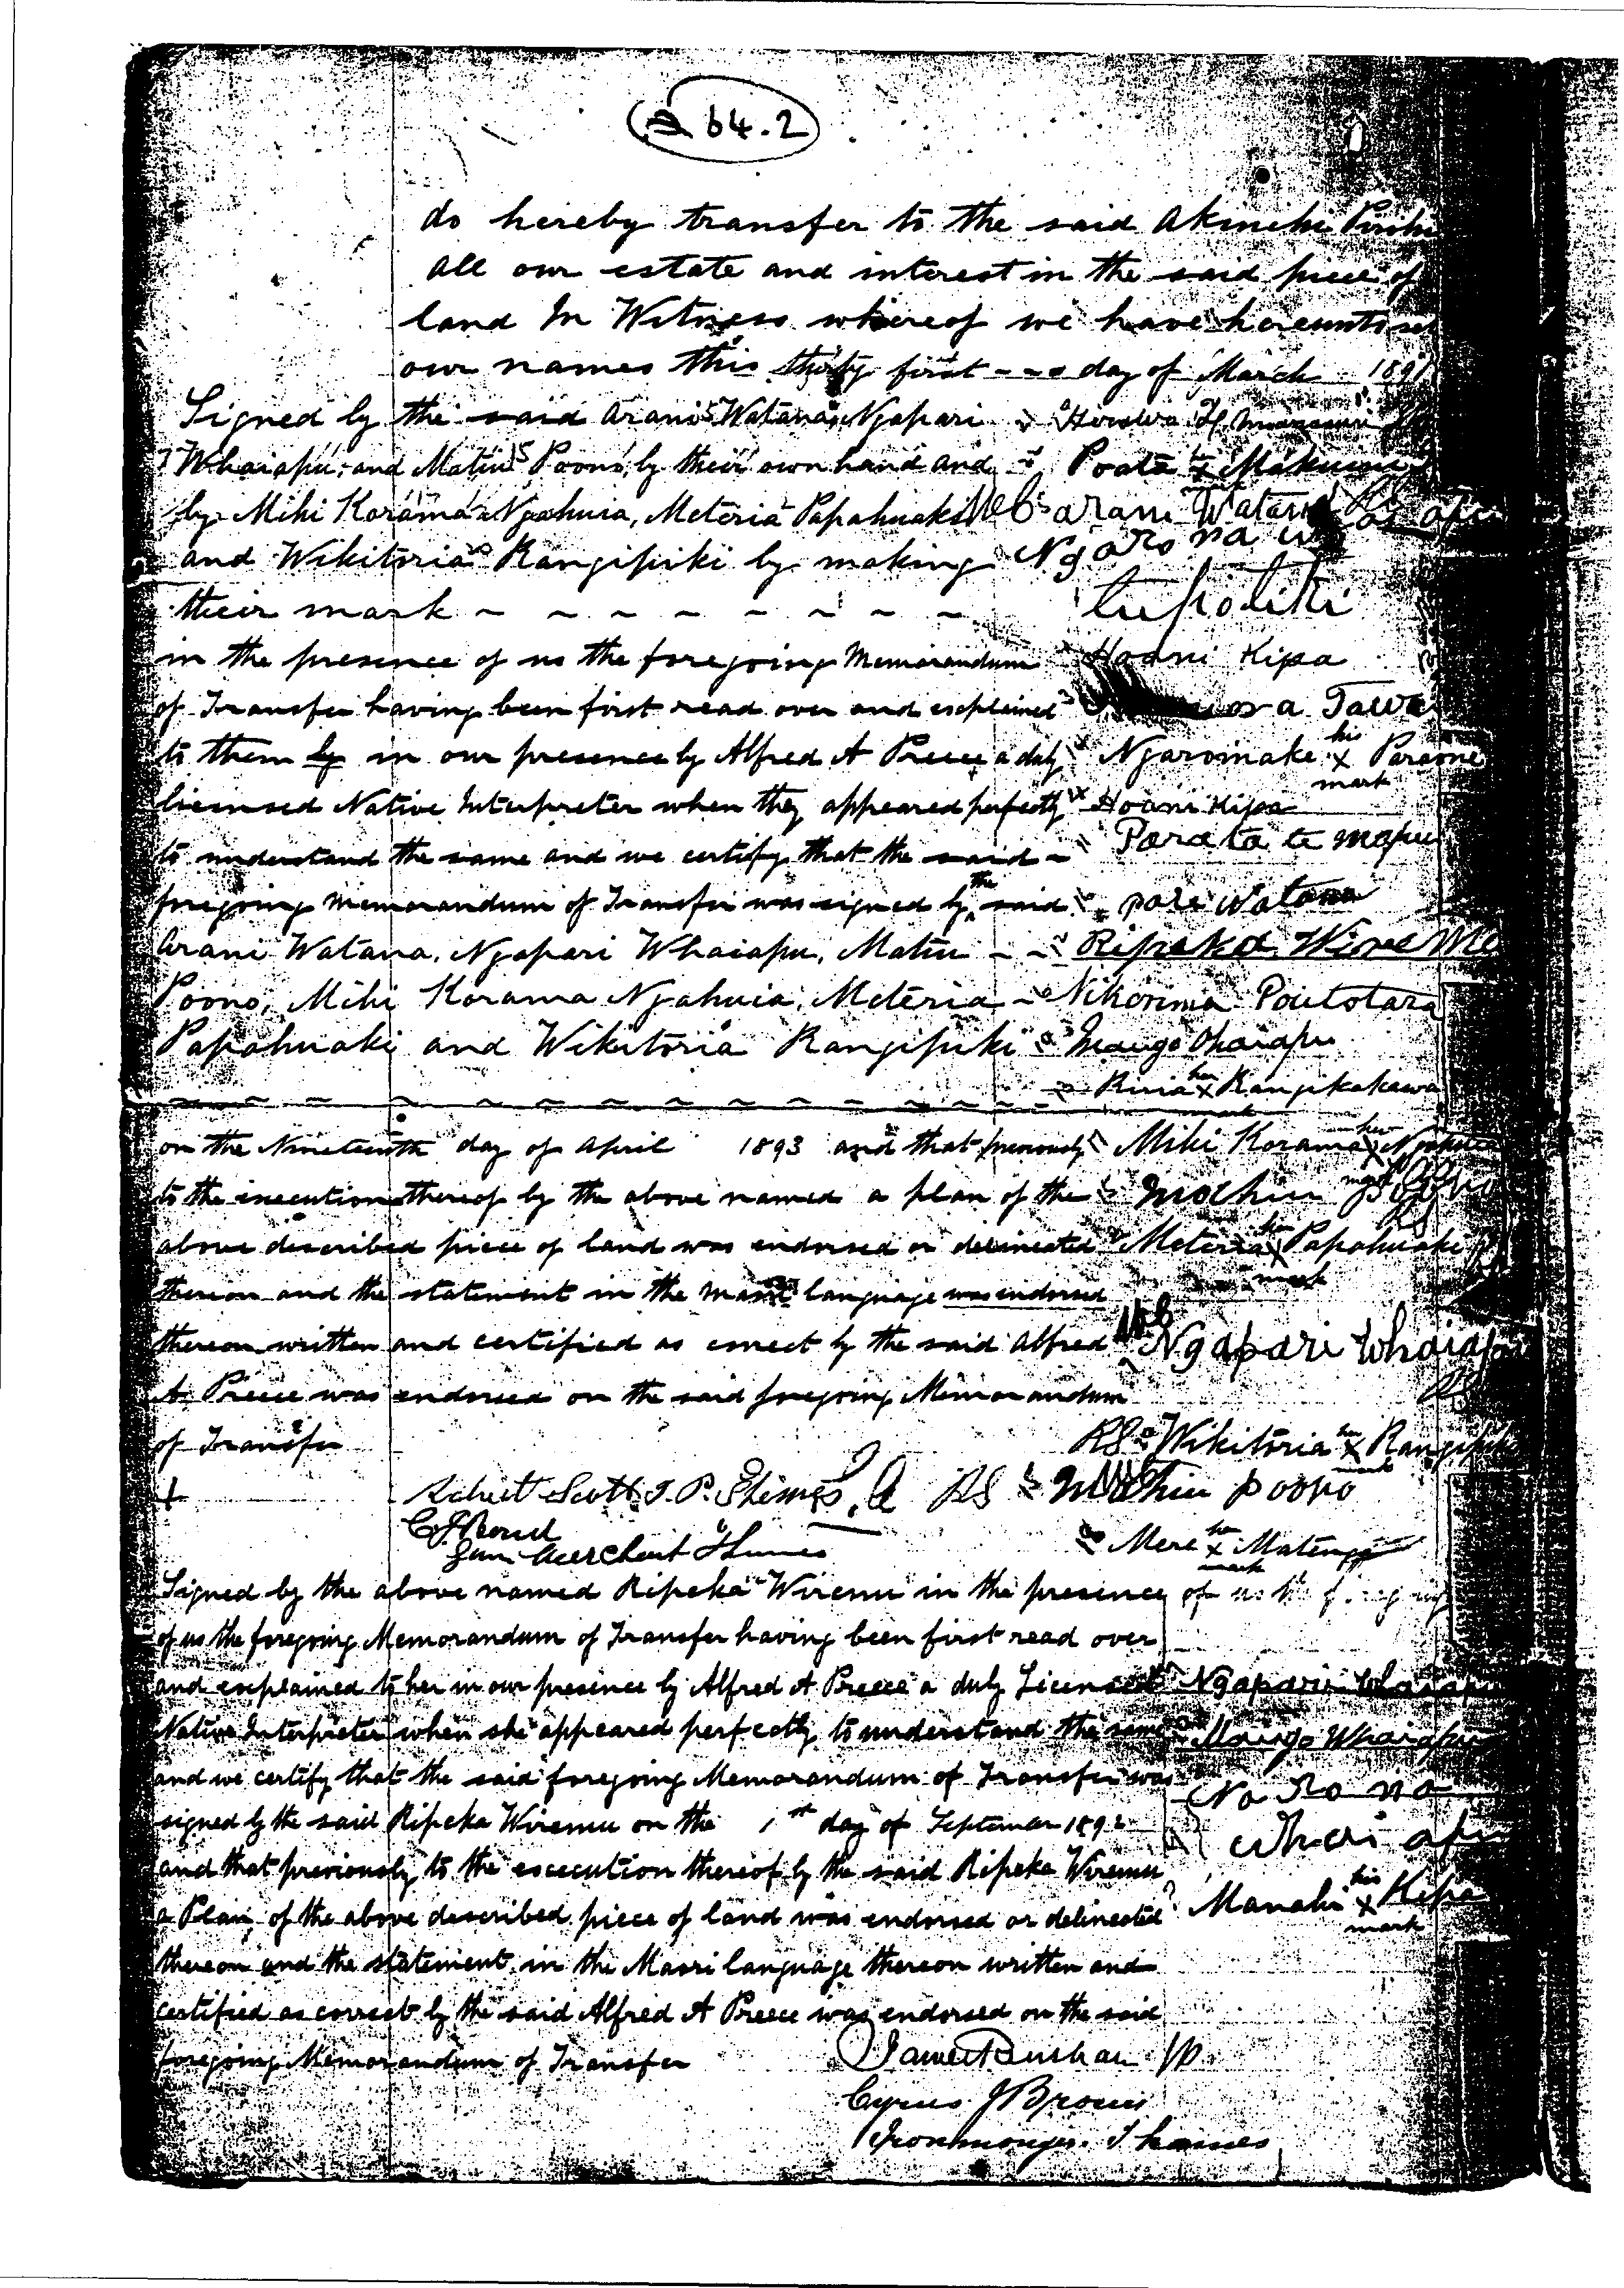 264.2
do hereby transfer to the said Akinehi Pirihi
all our estate and interest in the said piece of
land In Witness whereof we have hereunto set
our names this thirty first --- day of March 1891
Signed by the said Arani Watana, Ngapari
Whaiapu, and Matiu Poono, by their own hand and
Poata x Makuini
by Mihi Korama Ngahuia, Meteria Papahuaki
Arani Watana
and Wikitoria Rangipiki by making
Ngaro na
their mark ~ ~ ~ ~ ~ ~ ~ ~
tupotiki
in the presence of us the foregoing Memorandum
Hoani Kipa
of Transfer having been first read over and explained
ora Tawa
to them by in our presence by Alfred A Preece a duly
Ngaromake his x mark Paraone
licensed Native Interpreter when they appeared perfectly
Hoani Kipa
to understand the same and we certify that the said ~
Parata te mapu
foregoing Memorandum of Transfer was signed by the said
pare Watana
Arani Watana, Ngapari Whaiapu, Matiu - -
Ripeka Wiremu
Poono, Mihi Korama Ngahuia, Meteria -
Nikorima Poutotara
Papahuaki and Wikitoria Rangipiki
Maugo Whaiapu
Riria her x mark Rangikakawa
on the Nineteenth day of April 1893 and that previously
Mihi Korama her x Ngahuia
to the execution thereof by the above named a plan of the
above described piece of land was endorsed or delineated
Meteria her x mark Papahuaki
thereon and the statement in the Maori language was endorsed
thereon written and certified as correct by the said Alfred
Ngapari Whaiapu
A. Preece was endorsed on the said foregoing Memorandum
of Transfer
RS Wikitoria her x mark Rangipiki
Robert Scott J.P. Thames
RS Mathiu poono
Mere her x mark Matenga
Signed by the above named Ripeka Wiremu in the presence
of us the foregoing Memorandum of Transfer having been first read over
and explained to her in our presence by Alfred A Preece a duly Licensed
Ngapari Whaiapu
Native Interpreter when she appeared perfectly to understand the same
Maugo Whaiapu
and we certify that the said foregoing Memorandum of Transfer was
signed by the said Ripeka Wiremu on the 1st day of September 1892
whai apu
and that previously to the execution thereof by the said Ripeka Wiremu
Manahi his x mark Kipa
a Plan of the above described piece of land was endorsed or delineated
thereon and the statement in the Maori language thereon written and
certified as correct by the said Alfred A Preece was endorsed on the said
foregoing Memorandum of Transfer
Cyrus J Brown
Ironmonger. Thames